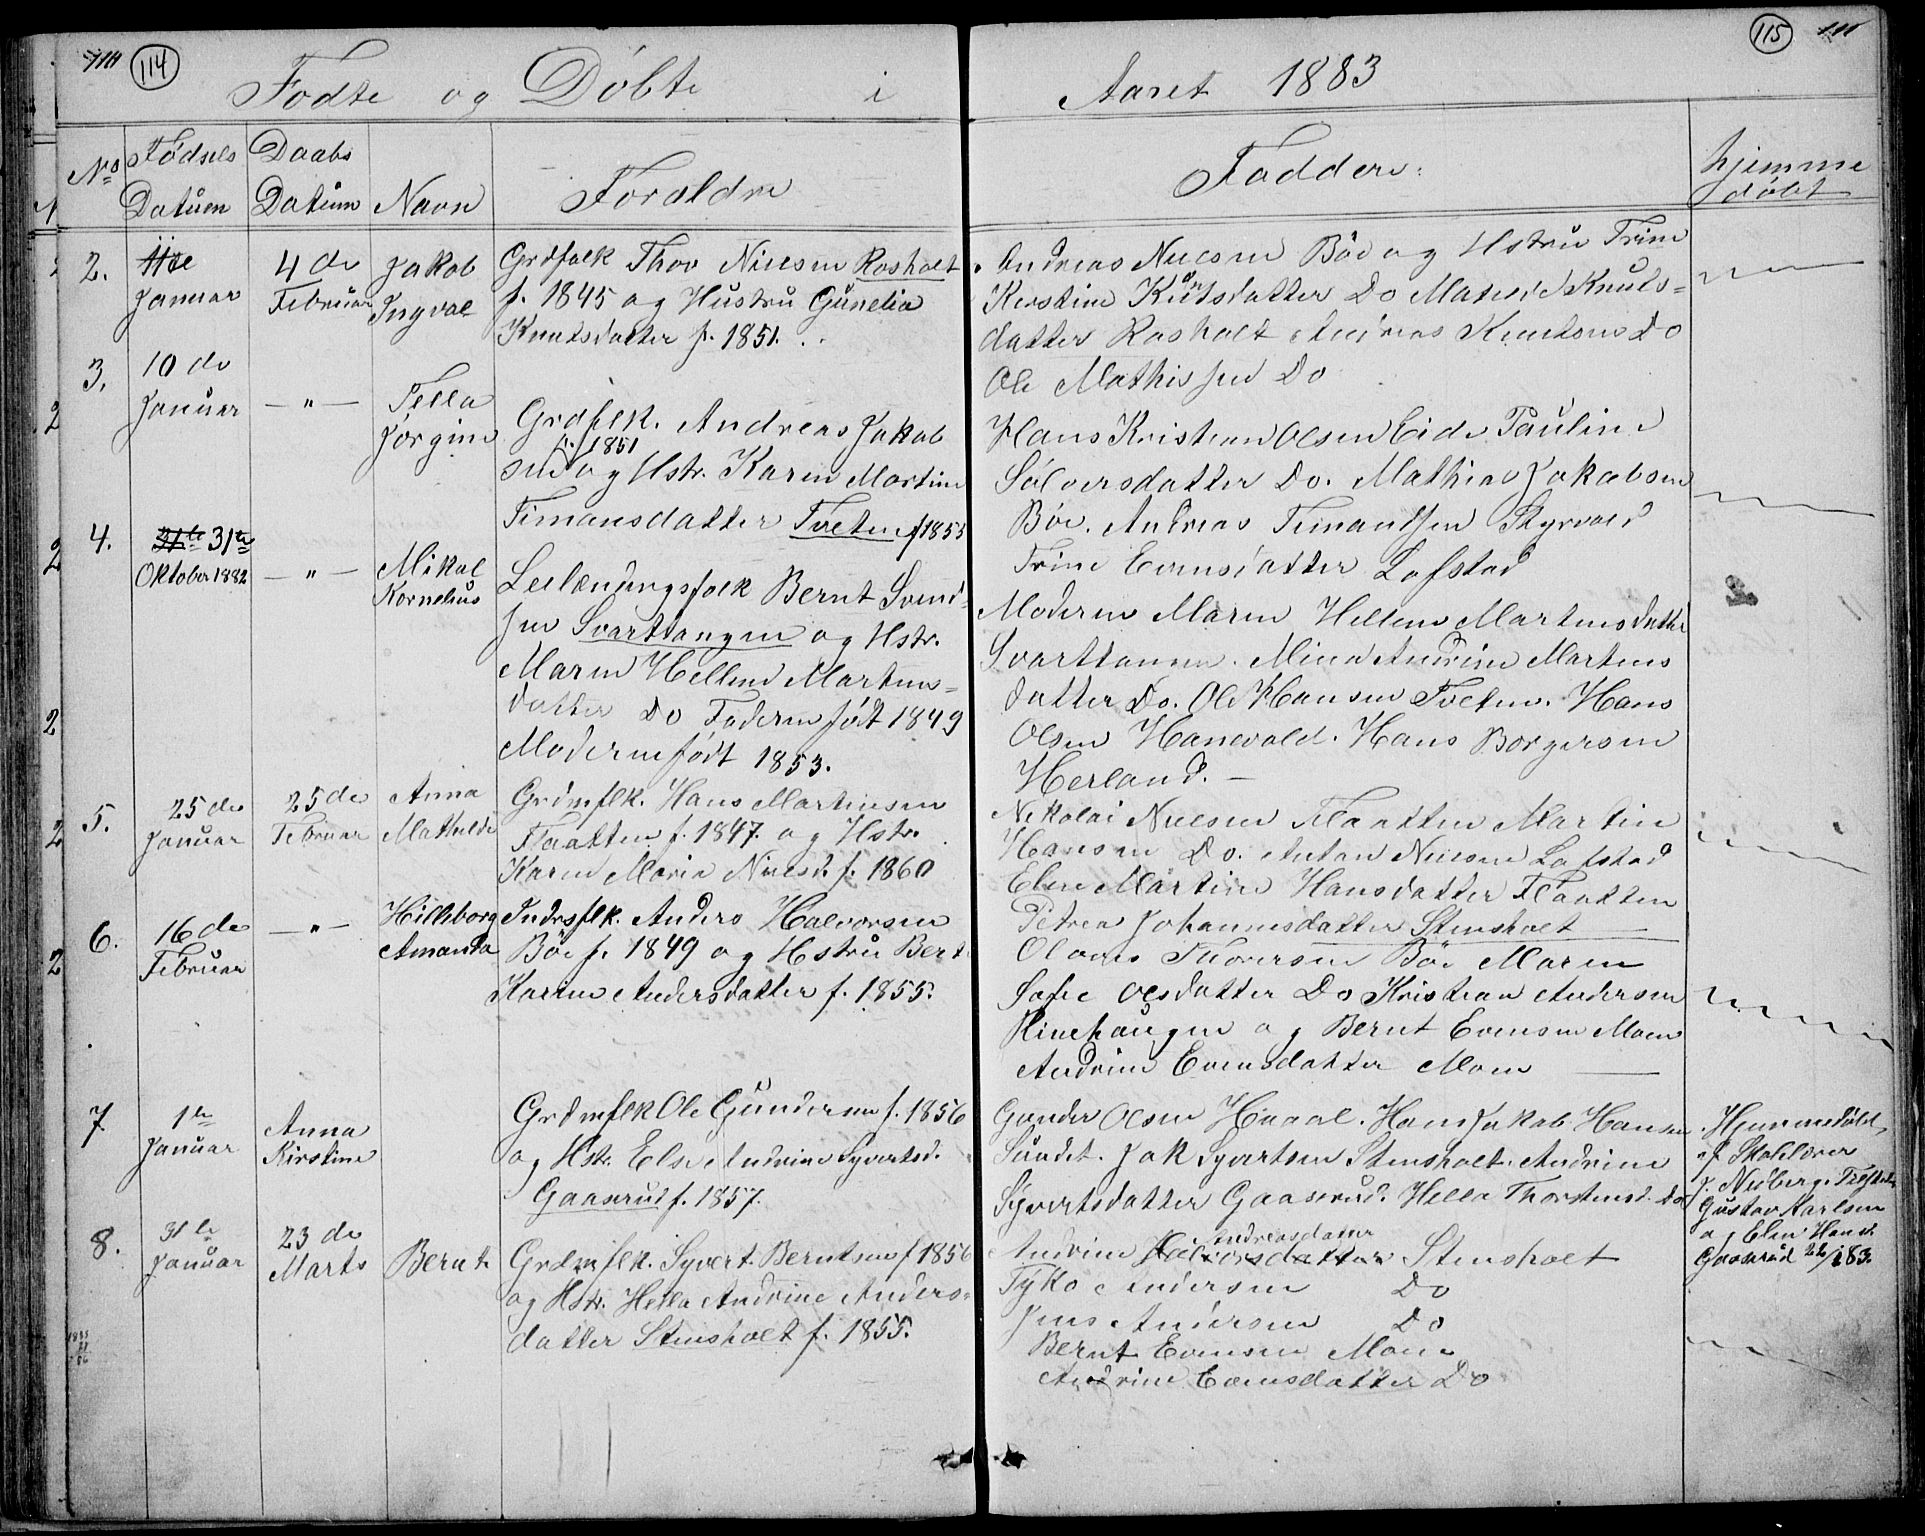 114 115
Fødte og Døbte i Aaret 1883
No Fødsels Datum Daabs Datum Navn Forældre Faddere: hjemme døbt
2. 11te Januar 4 de Februar Jakob Ingval
Grdfolk Thov Nilsen Rosholt
f. 1845 og Hustru Gunelia
Knutsdatter f. 1851.
Andreas Nilsen Böe og Hstru Trine
Kirstine Knutsdatter Do Mathilde Knuts-
datter Rosholt Andreas Knutsen Do
Ole Mathissen Do
3. 10 de Januar — " — Tella Jørgine
Grdflk. Andreas Jakob
f. 1851
sen og Hstr. Karen Martine
Timansdatter Tveten f 1855
Hans Kristian Olsen Eide Pauline
Sølversdatter Do. Mathias Jakobsen
Böe. Andreas Timansen Skyrvold
Trine Evensdatter Lofstad
4. 31te 31te Oktober 1882 — " — Mikal Kornelius
Leilændingsfolk Bernt Svend-
sen Svarttangen og Hstr.
Maren Hellene Martins-
datter Do Faderen født 1849
Moderen født 1853.
Moderen Maren Hellene Martinsdatter
Svarttangen. Mina Andrine Martins
datter Do. Ole Hansen Tveten. Hans
Olsen Hanevold. Hans Borgersen
Herland. —
5. 25 de Januar 25 de Februar Anna Mathilde
Grdmflk. Hans Martinsen
Flaatten f. 1847. og Hstr.
Karen Maria Nilsd. f. 1860
Nikolai Nilsen Flaatten Martin
Hansen Do. Anton Nilsen Lofstad
Elen Martine Hansdatter Flaatten
Petrea Johannesdatter Stensholt
6. 16 de Februar — " — Hilleborg Amanda
Indrsflk. Anders Halvorsen
Böe f. 1849 og Hstru Bert
Karine Andersdatter f. 1855.
Olaves Thorersen Böe Maren
Sofie Olsdatter Do Kristian Andersen
og Bernt Evensen Moen
Andrine Evensdatter Moen —
7 1te Januar Anna Kirstine
Grdmflk Ole Gundersen f. 1856
og Hstr. Else Andrine Syvertsd.
Gaaserud f. 1857.
Gunder Olsen Haaal. Hans Jakob Hansen
Sundet. Jak Syvertsen Stensholt. Andrine
Syvertsdatter Gaaserud. Hella Thorstensd. Do
Hjemmedøbt
af Skolelærer
Gustav Karlsen
og Elen Hansd.
Gaaserud 22/1 83.
8. 31te Januar 23 de Marts Bernt
Grdmflk. Syvert Berntsen f 1856
og Hstr. Hella Andrine Anders-
datter Stensholt f. 1855.
Andreasdatter
Andrine Halvorsdatter Stensholt
Tyko Andersen Do
Jens Andersen Do
Bernt Evensen Moen
Andrine Evensdatter Do